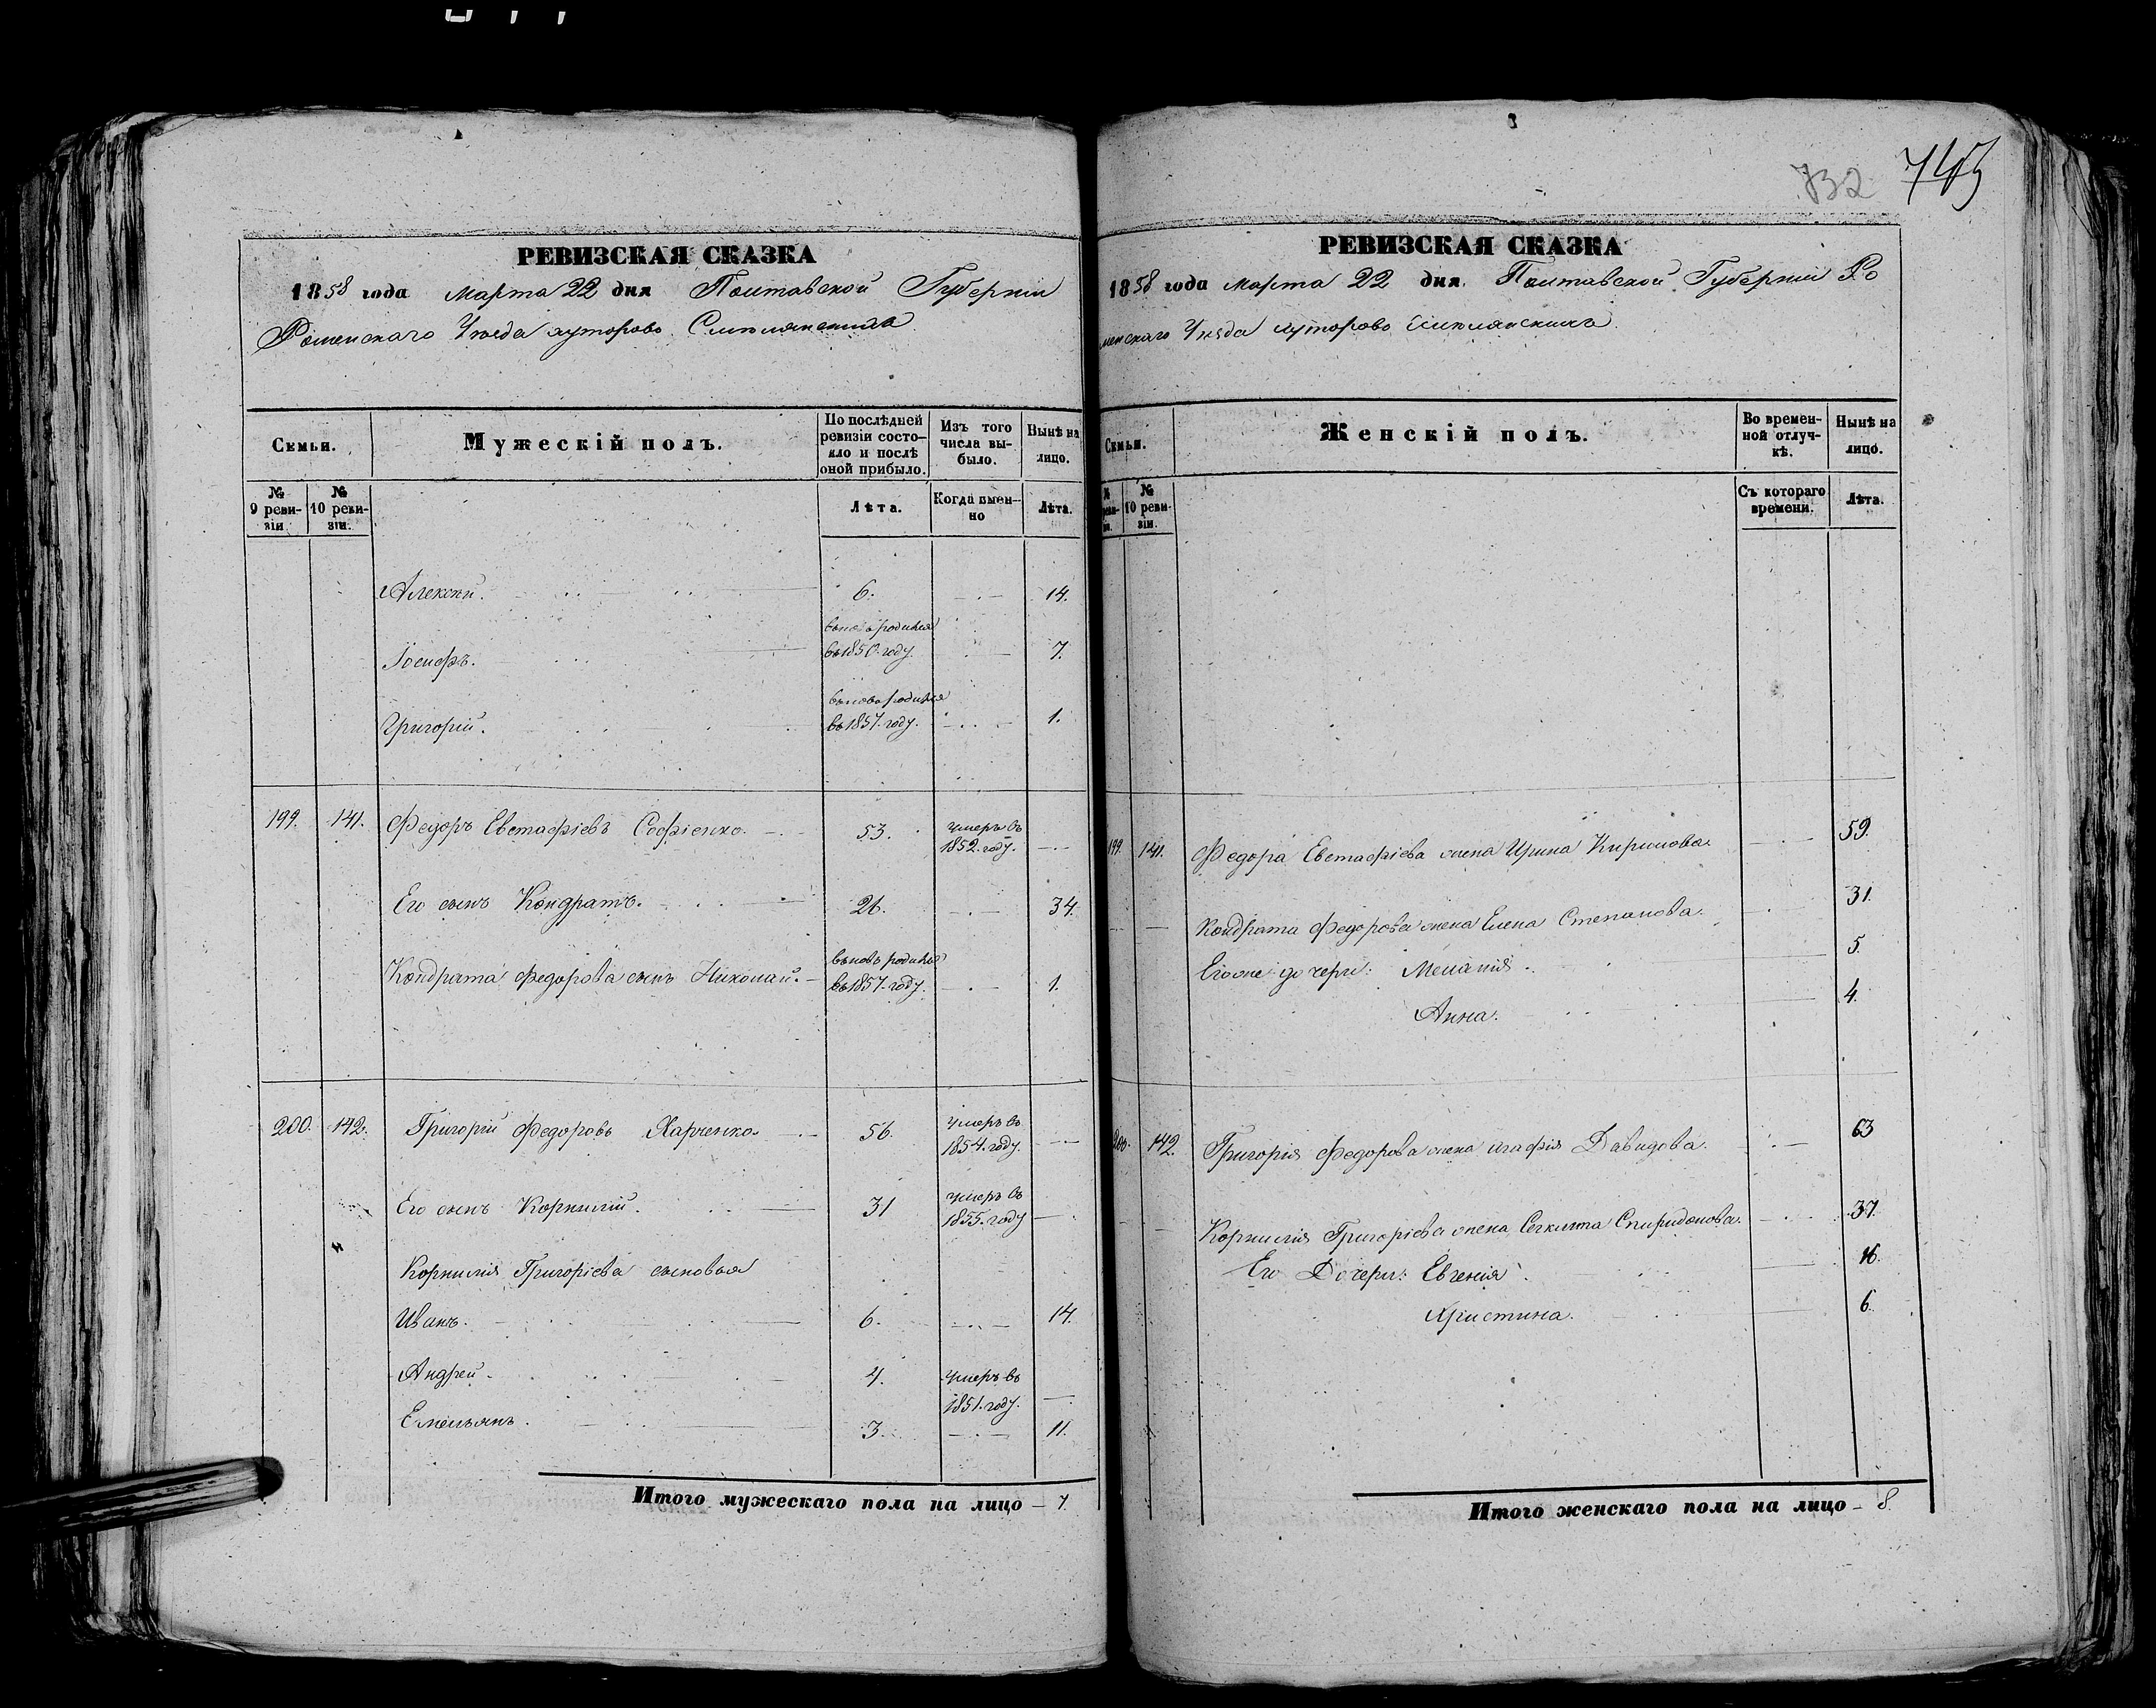 732 743
РЕВИЗСКАЯ СКАЗКА
1858 года Марта 22 дня Полтавской Губерніи
Роменскаго Уезда хуторовъ
Семьи.
Мужескій полъ.
По послѣдней ревизіи состояло и послѣ оной прибыло.
Изъ того числа выбыло.
Нынѣ на лицо.
№ 9 ревизіи
№ 10 ревизіи.
Лѣта.
Когда именно
Лѣта.
Алексѣй. 6. 14.
вновь родился
Іосифъ. въ 1850. году 7.
вновь родился
Григорій. въ 1857. году. 1.
199. 141. Федоръ Евстафіевъ Софіенко. 53. умеръ въ 1852. году.
Его сынъ Кондратъ. 26. 34.
вновь родился
Кондрата Федорова сынъ Николай. въ 1857. году. 1.
200. 142. Григорій Федоровъ Харченко. 56. умеръ въ 1854. году.
Его сынъ Корнилій. 31 умеръ въ 1855. году
Корнилія Григоріева сыновья
Иванъ. 6. 14.
Андрей. 4. умеръ въ 1851. году.
Емельянъ. 3. 11.
Итого мужескаго пола на лицо – 7.
РЕВИЗСКАЯ СКАЗКА
1858 года Марта 22 дня. Полтавской Губерніи Ро
менскаго Уезда хуторовъ
Семьи.
Женскій полъ.
Во временной отлучкѣ.
Нынѣ на лицо.
№ 10 ревизіи.
Съ котораго времени.
Лѣта.
199. 141. Федора Евстафіева жена Ирина Кирилова. 59.
Кондрата Федорова жена Елена Степанова. 31.
Его же дочери: Меланія. 5.
Анна. 4.
200. 142. Григорія Федорова жена Агафія Давидова. 63
Корнилія Григоріева жена Спиридонова. 37.
Его Дочери: Евгенія. 16.
Христина. 6.
Итого женскаго пола на лицо – 8.